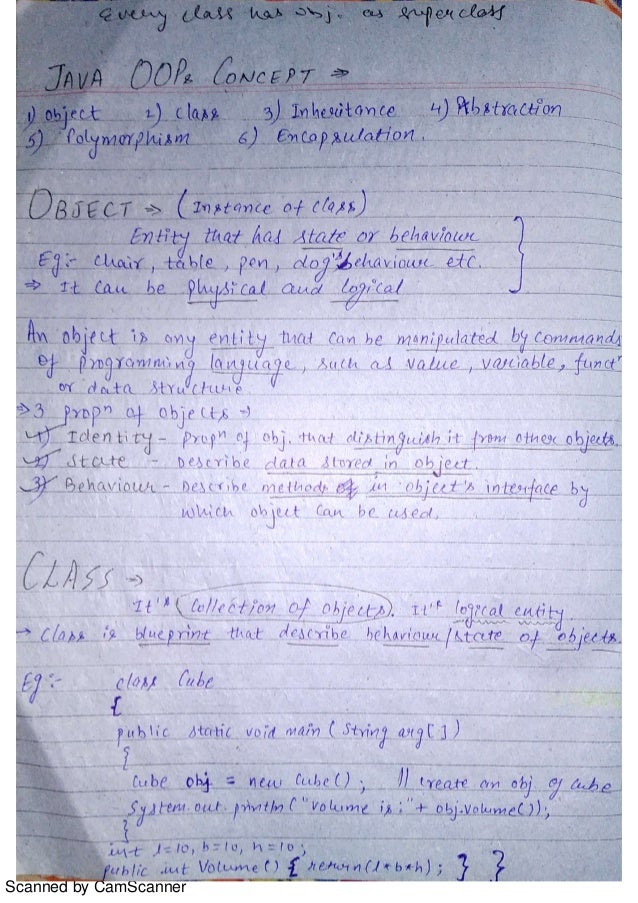 Every class has obj. as superclass
JAVA OOPs CONCEPT ⇒
1) object 2) class 3) Inheritance 4) Abstraction
5) Polymorphism 6) Encapsulation.
OBJECT ⇒ (Instance of class)
Entity that has state or behaviour
Eg:- chair, table, pen, dog's behaviour etc.
⇒ It can be physical and logical
An object is any entity that can be manipulated by commands
of programming language, such as value, variable, functn
or data structure
⇒ 3 propn of objects →
1) Identity - propn of obj. that distinguish it from other objects.
2) State - Describe data stored in object.
3) Behaviour - Describe methods in object's interface by
which object can be used.
CLASS →
It's (collection of objects). It's logical entity
→ Class is blueprint that describe behaviour/state of objects.
Eg:- class Cube
{
public static void main (String arg[])
{
Cube obj = new Cube(); // create an obj of cube
System.out.println("volume is:"+ obj.volume());
}
int l=10, b=10, h=10;
public int Volume() { return(l*b*h); } }
Scanned by CamScanner